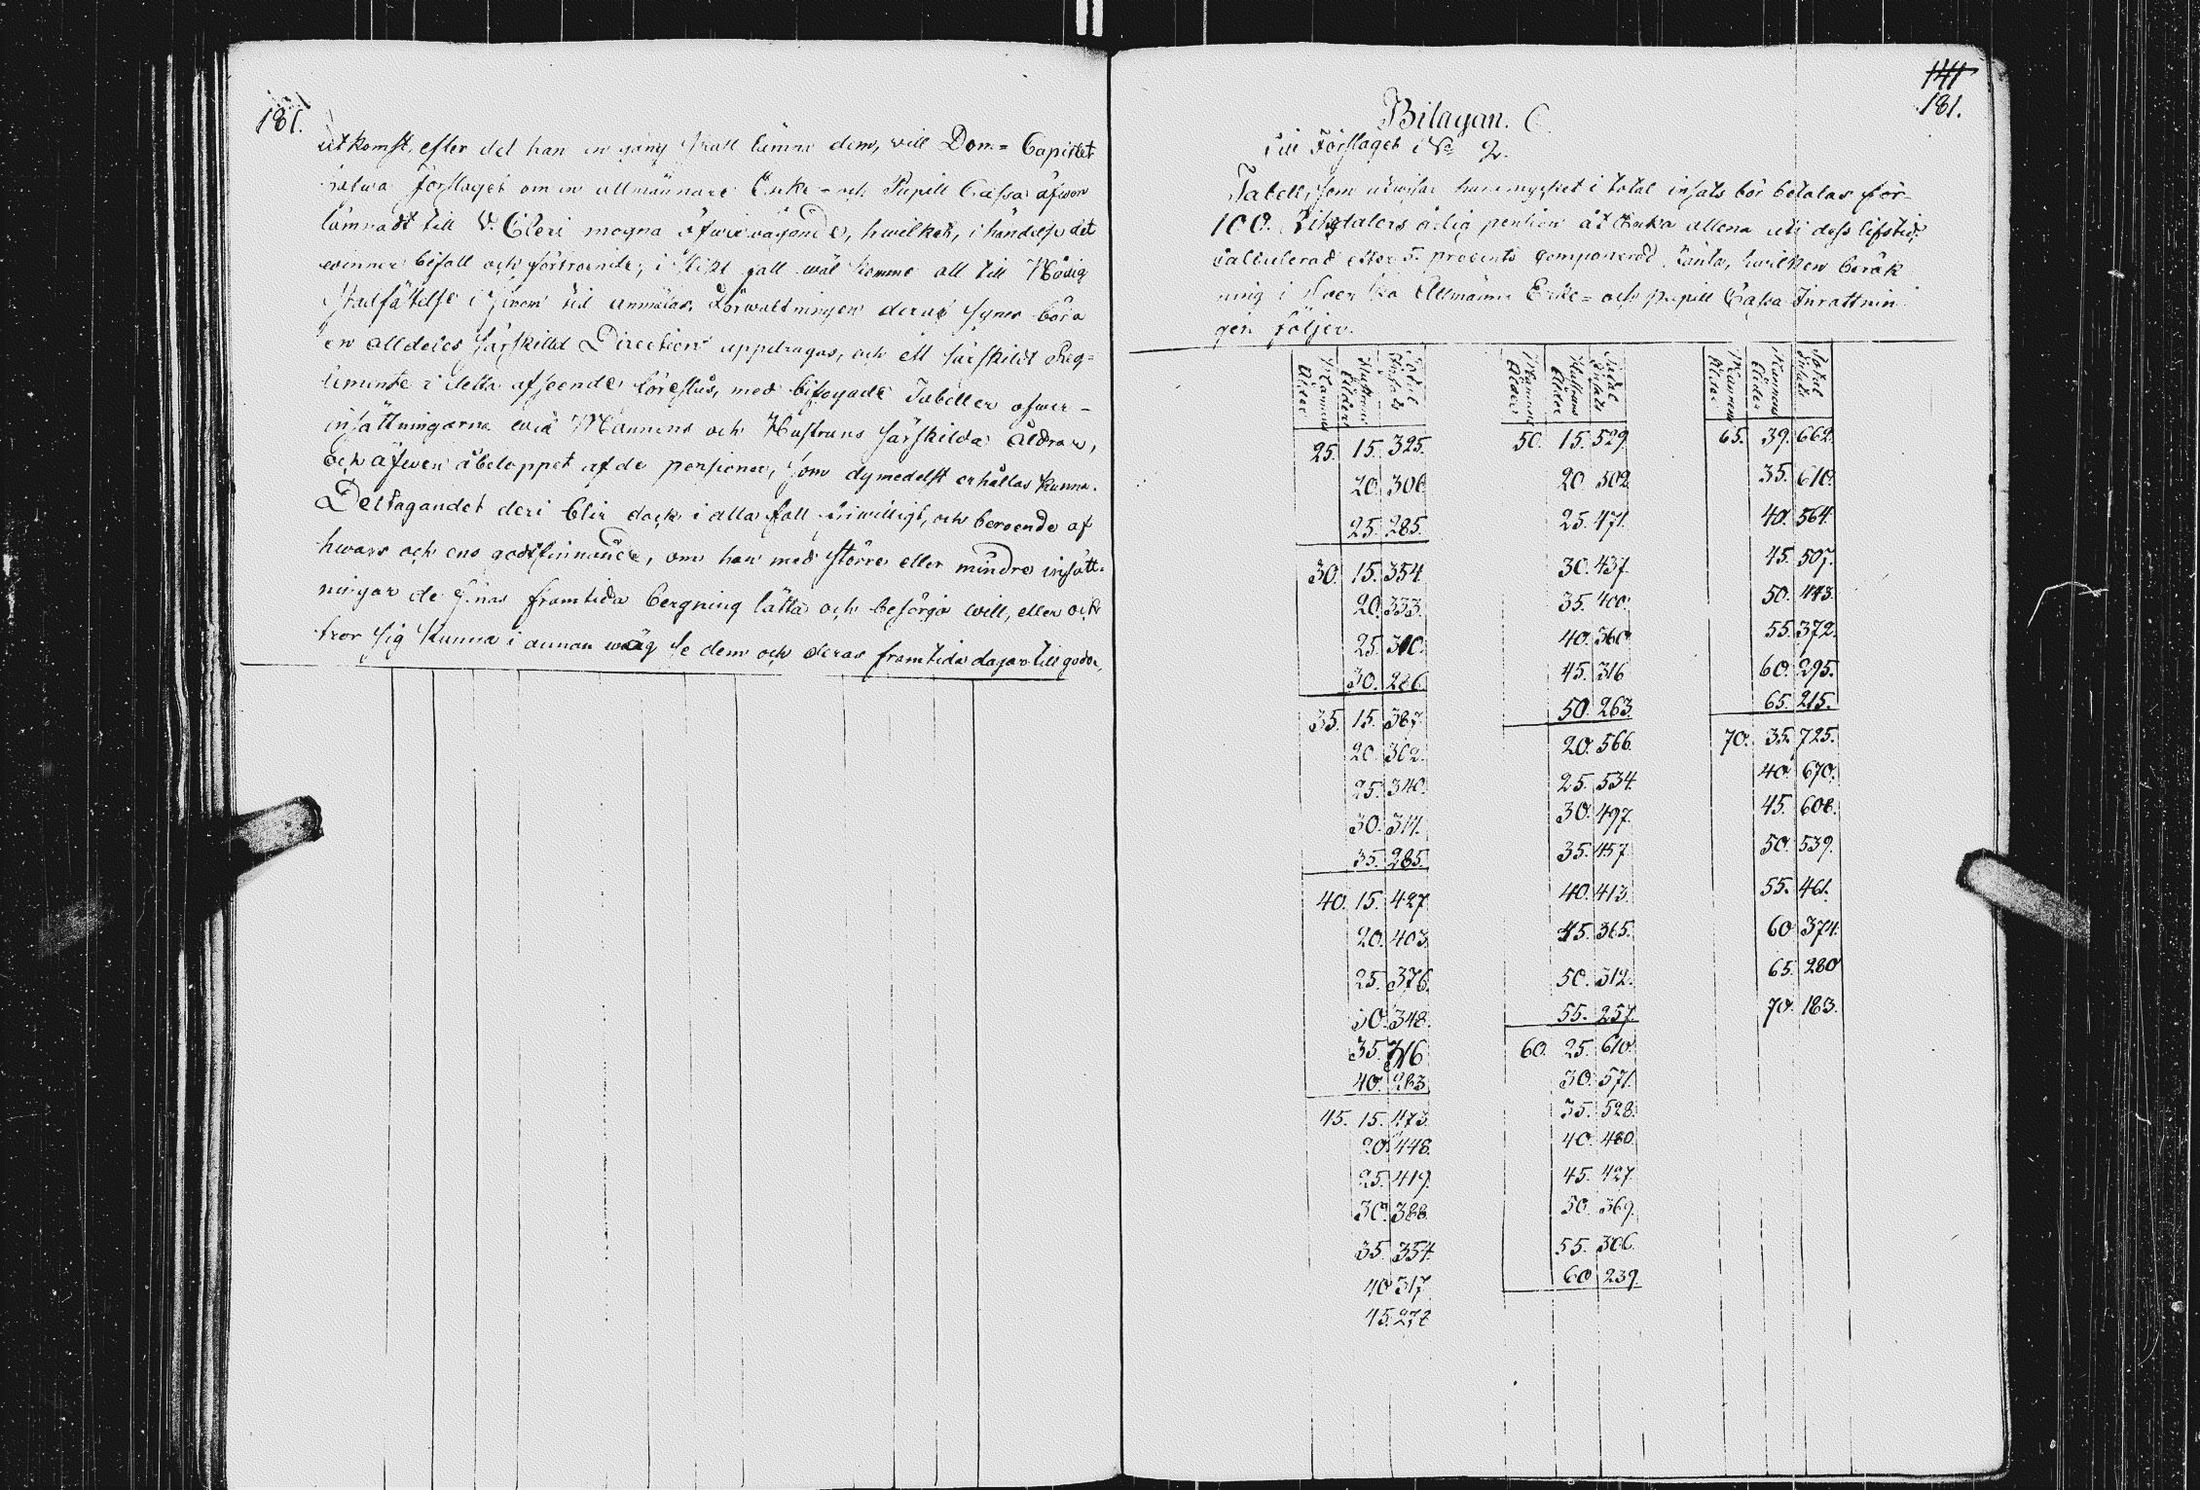 181.
utkomst, efter det han en gång skall lämna dem, vill Dom= Capitlet
hafwa förslaget om en allmännare Enke= och Pupill Cassa äfwen
lämnadt till V. Cleri mogna öfwervägande, hwilket, i händelse det
winner bifall och förtroende, i slikt fall wäl komme att till Nådig
Stadfästelse i sinom tid anmälas. Förwaltningen deraf synes böra
en alldeles särskilld Direction uppdragas, och ett särskildt Reg=
lemente i detta afseende föreslås, med bifogade Tabeller öfwer
insättningarna wid Mannens och Hustruns särskilda åldrar,
och äfwen å beloppet af de pensioner, som dymedelst erhållas kunna.
Deltagandet deri blir dock i alla fall friwilligt, och beroende af
hwars och ens godtfinnande, om han med större eller mindre insätt=
ningar de Sinas framtida bergning lätta och besörja will, eller ock
tror sig kunna i annan wäg se dem och deras framtida dagar till godo.
141
181.
Bilagan. C.
till Förslaget No 2.
Tabell, som utwisar huru mycket i total insats bör betalas för
100. Riksdalers årlig pention åt Enka allena uti dess lifstid,
calculerad efter 5. procents componerad ränta, hwilken beräk
ning i Swenska Allmänna Enke= och pupill Cassa Inrättnin
gen följer.
Mannens Ålder Hustruns Ålder Total Insats
25. 15. 325.
20. 306.
25. 285.
30. 15. 354.
20. 333.
25. 310.
30. 286.
35. 15. 387.
20. 362.
25. 340.
30. 314.
35. 285.
40. 15. 427.
20. 403.
25. 376.
30. 348.
35. 316
40. 283
45. 15. 473.
20. 448.
25. 419.
30. 388.
35. 354.
40 317.
45. 278
Mannens Ålder Hustruns Ålder Total Insats
50. 15. 529.
20. 502.
25. 471.
30. 437.
35. 400.
40. 360.
45. 316
50. 263.
20. 566.
25. 534.
30. 497.
35. 457.
40. 413.
45. 365.
50. 312.
55. 257.
60. 25. 610.
30. 571.
35. 528.
40. 480.
45. 427.
50. 369.
55. 306.
60. 239.
Mannens Ålder Mannens Ålder Total Insats
65. 39. 662.
35. 610.
40. 564.
45. 507.
50. 443.
55. 372.
60. 295.
65. 215.
70. 35. 725.
40. 670.
45. 608.
50. 539.
55. 461.
60. 374.
65. 280
70. 183.